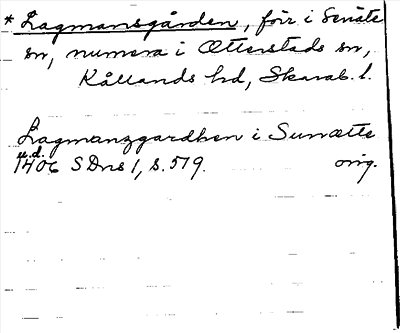 * Lagmansgården, förr i Senäte
sn, numera i Otterstads sn,
Kållands hd, Skarab. l.
Lagmanzgardhen i Sunætte
u.d.
1406 SDns 1, s. 579. orig.